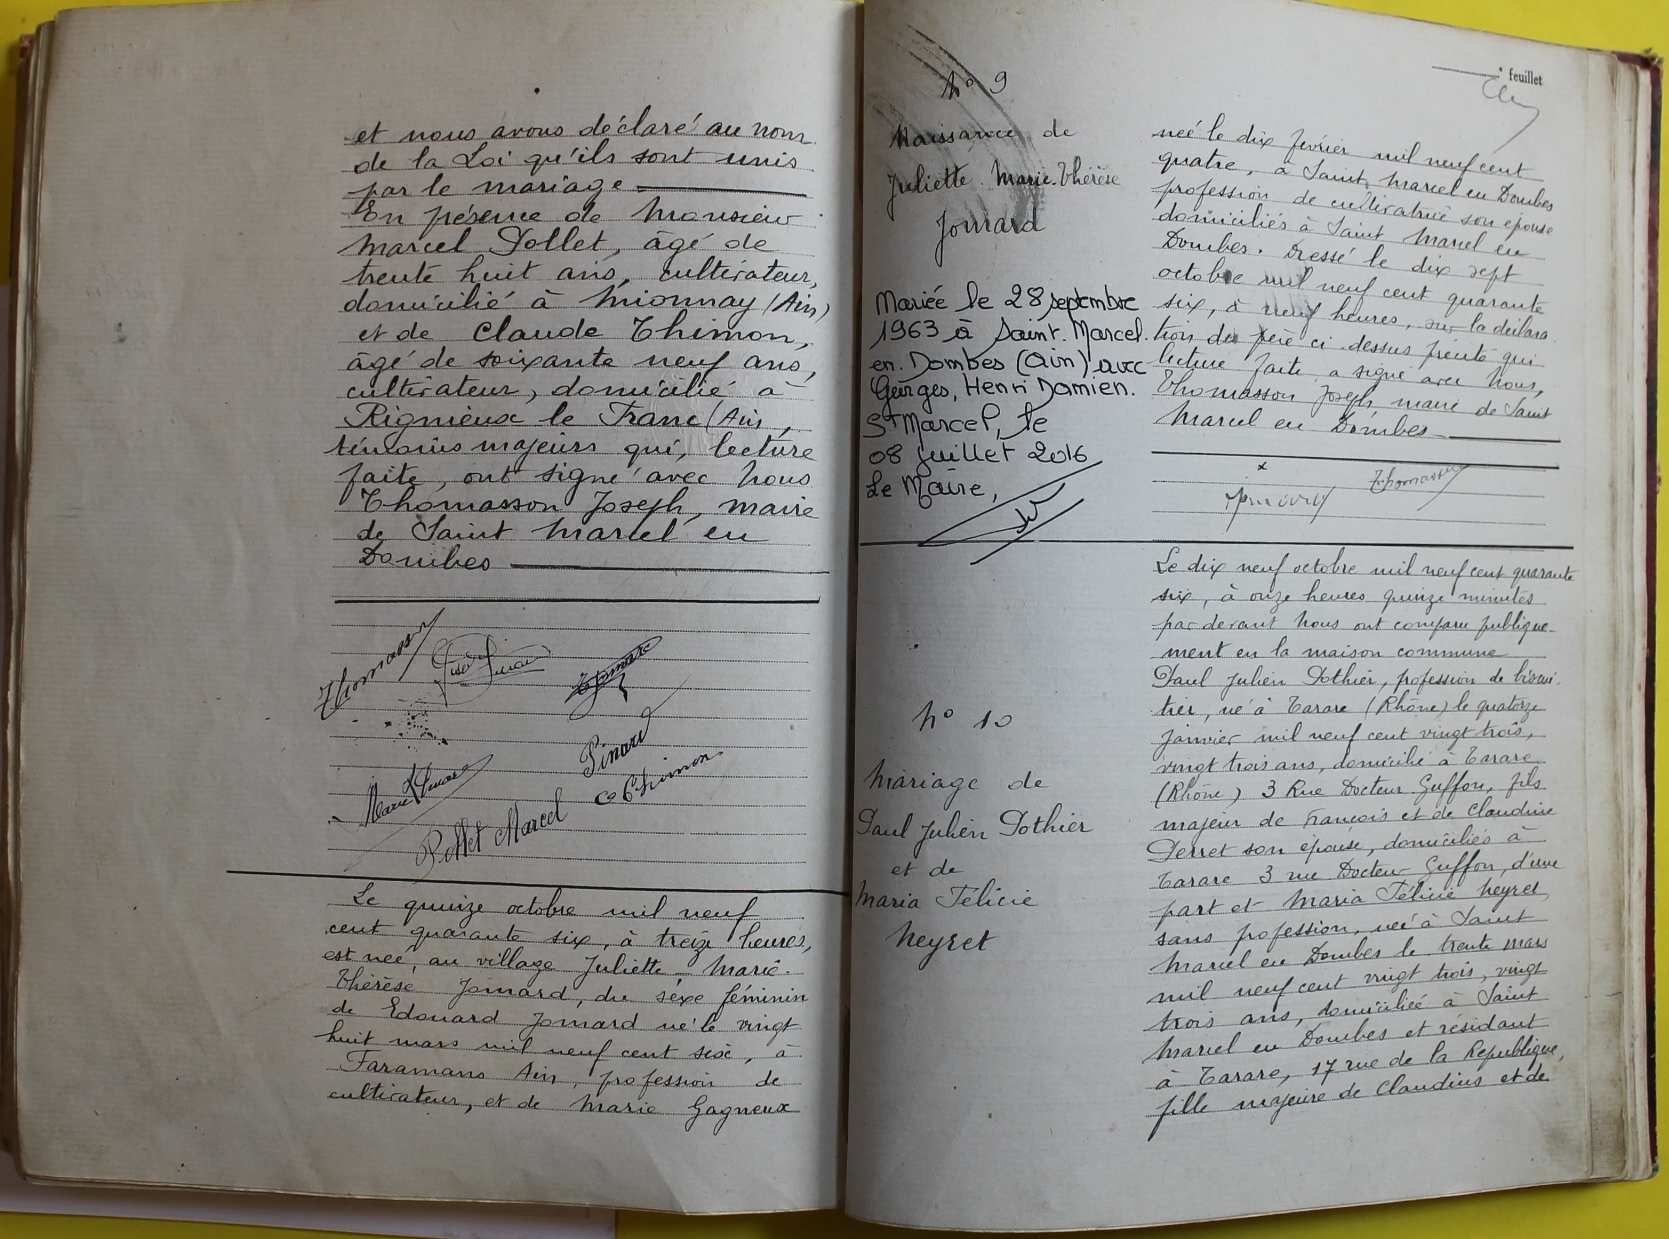 et nous avons déclaré au nom
de la Loi qu'ils sont unis
par le mariage
En présence de Monsieur
Marcel Pollet, âgé de
trente huit ans, cultivateur,
domicilié à Mionnay (Ain)
et de Claude Thimon,
âgé de soixante neuf ans,
cultivateur, domicilié à
Rignieux le Franc (Ain,
témoins majeurs qui, lecture
faite, ont signé avec Nous
Thomasson Joseph, maire
de Saint Marcel en
Dombes
Thomasson
Pinard
Marie
C Thimon
Pollet Marcel
Le quinze octobre mil neuf
cent quarante six, à treize heures,
est née, au village Juliette Marie
Thérèse Jomard, du sexe féminin
de Edouard Jomard né le vingt
huit mars mil neuf cent six, à
Faramans Ain, profession de
cultivateur, et de Marie Gagneux
feuillet
N° 9
Naissance de
Juliette Marie-Thérèse
Jomard
Mariée le 28 septembre
1963 à Saint. Marcel.
en. Dombes (Ain) avec
Georges, Henri Damien.
St Marcel, le
08 juillet 2016
Le Maire,
née le dix février mil neuf cent
quatre, à Saint Marcel en Dombes
profession de cultivatrice son épouse
domiciliés à Saint Marcel en
Dombes. Dressé le dix sept
octobre mil neuf cent quarante
six, à neuf heures, sur la déclara
tion du père ci-dessus prénté qui
lecture faite a signé avec Nous,
Thomasson Joseph maire de Saint
Marcel en Dombes
Thomasson
N° 10
Mariage de
Paul Julien Pothier
et de
Maria Félicie
Neyret
Le dix neuf octobre mil neuf cent quarante
six, à onze heures quinze minutes
par devant Nous ont comparu publique-
ment en la maison commune
Paul Julien Pothier, profession de
né à Tarare (Rhône) le quatorze
janvier mil neuf cent vingt trois,
vingt trois ans, domicilié à Tarare
(Rhône) 3 Rue Docteur Guffon, fils
majeur de François et de Claudine
Perret son épouse, domiciliés à
Tarare 3 rue Docteur Guffon, d'une
part et Maria Félicie Neyret
sans profession, née à Saint
Marcel en Dombes le trente mars
mil neuf cent vingt trois, vingt
trois ans, domiciliée à Saint
Marcel en Dombes et résidant
à Tarare, 17 rue de la République,
fille majeure de Claudius et de